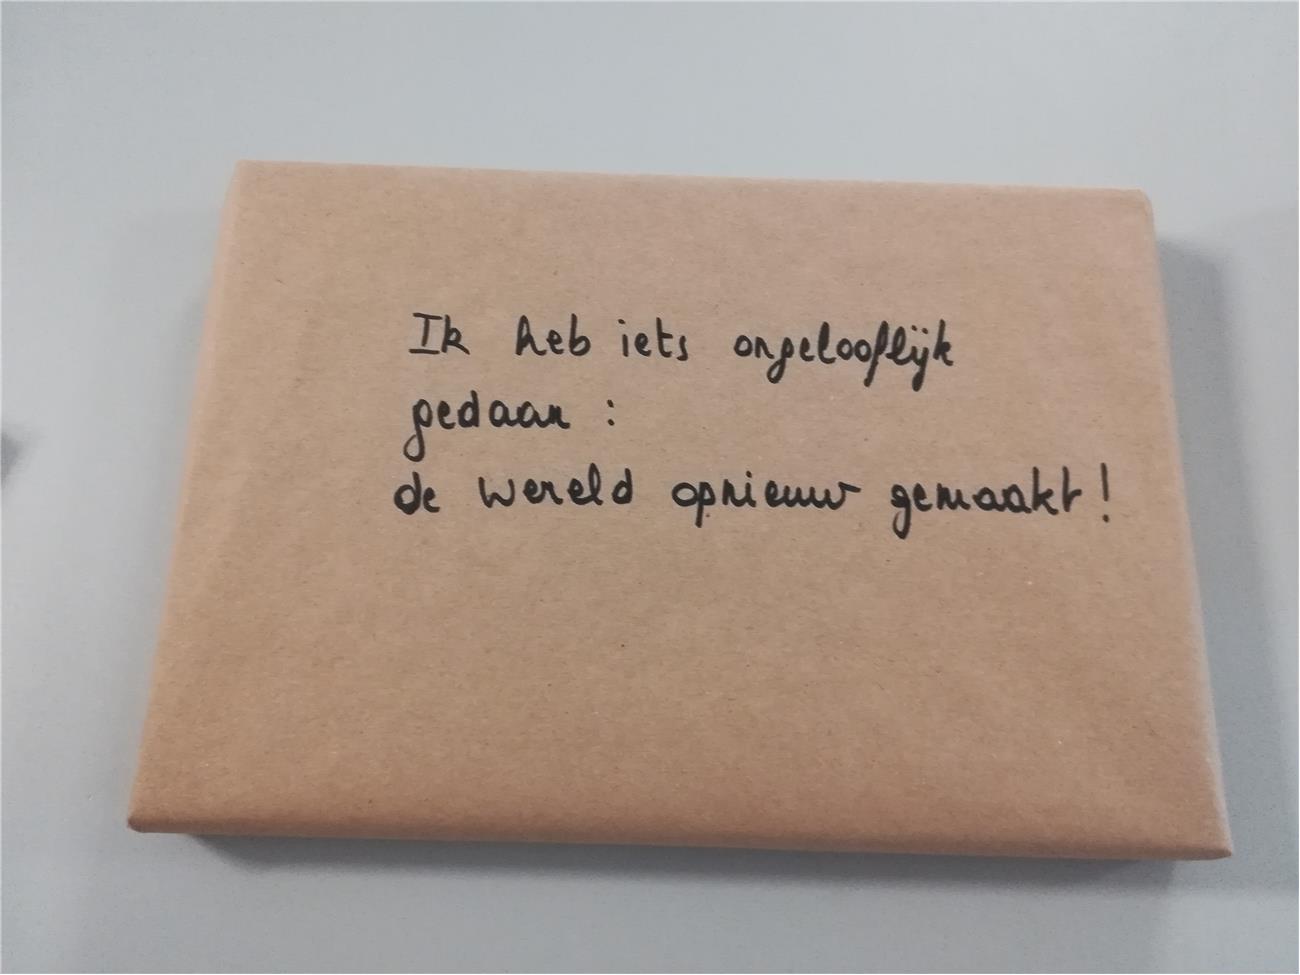 Ik heb iets ongelooflijk
gedaan :
de wereld opnieuw gemaakt !